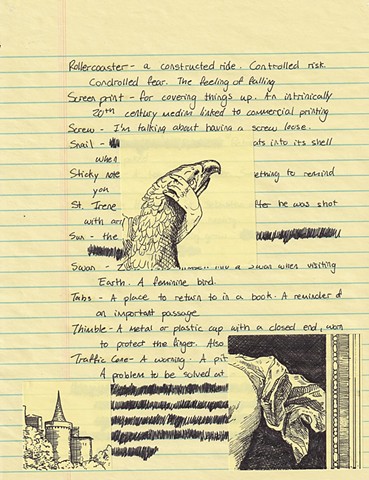 Rollercoaster - a constructed ride. Controlled risk.
Controlled fear. The feeling of falling
Screen print - for covering things up. An intrinsically
20th century medium linked to commercial printing
Screw - I'm talking about having a screw loose.
Snail - into its shell
when
Sticky note to remind
you
St. Irene he was shot
with
Sun - the
Swan - a swan when visiting
Earth. A feminine bird.
Tabs - A place to return to in a book. A reminder of
an important passage
Thimble - A metal or plastic cup with a closed end, worn
to protect the finger. Also
Traffic Cone - A warning. A pit
A problem to be solved at